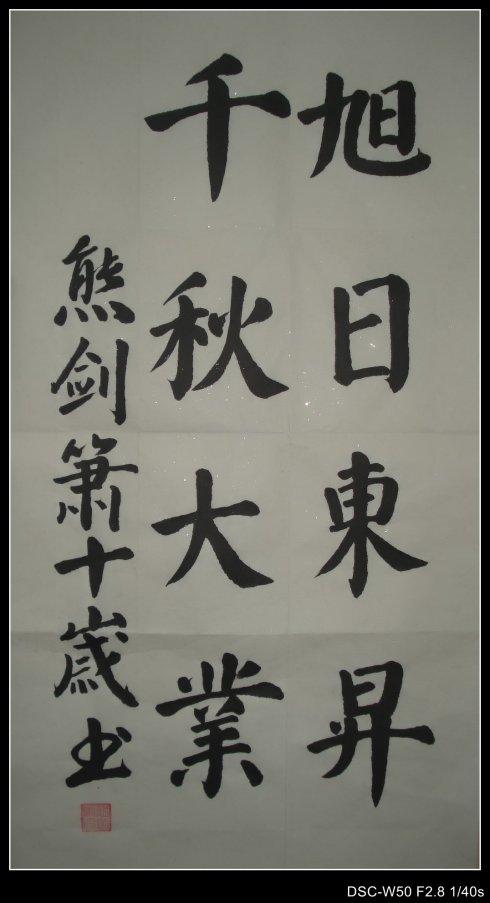 旭日東昇
千秋大業
熊剑箫十歲书
DSC-W50 F2.8 1/40s